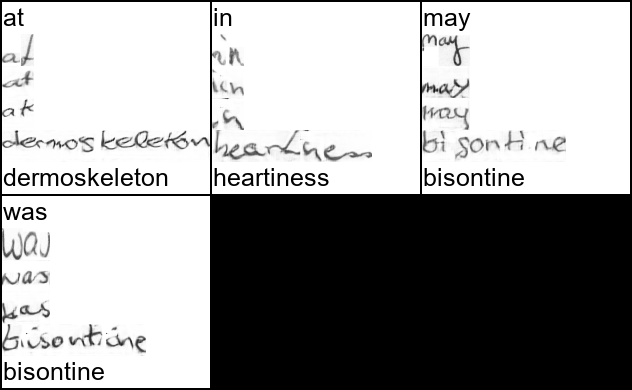 at
at
at
at
dermoskeleton
dermoskeleton
in
in
in
in
heartiness
heartiness
may
may
may
may
bisontine
bisontine
was
was
was
was
bisontine
bisontine